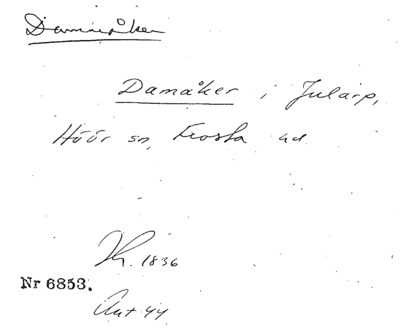 Dammåker
Damåker i Julårp,
Höör sn, Frosta hd.
Kr. 1836
Nr 6853.
Ant 44